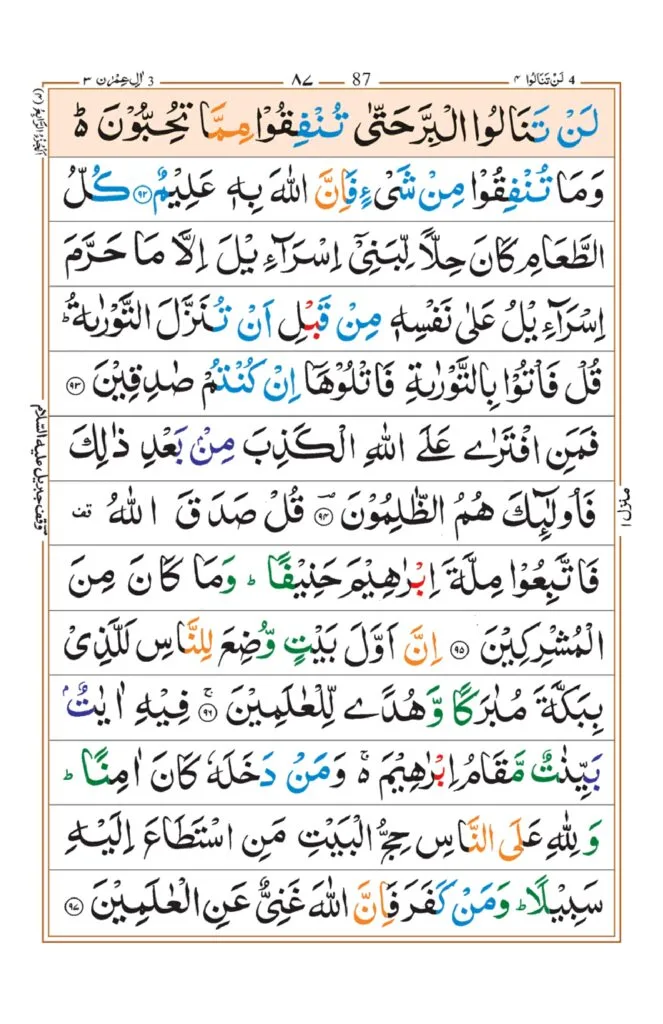 4 لَنْ تَنَالُوا ۴ 87 ۸۷ 3 اٰلِ عِمْرٰن ۳
اَلْجُزْءُ الرَّابِعُ (۴)
لَنْ تَنَالُوا الْبِرَّ حَتّٰى تُنْفِقُوْا مِمَّا تُحِبُّوْنَ ۵ؕ
وَمَا تُنْفِقُوْا مِنْ شَیْءٍ فَاِنَّ اللّٰهَ بِهٖ عَلِيْمٌ ۹۲ كُلُّ
الطَّعَامِ كَانَ حِلًّا لِّبَنِیْۤ اِسْرَآءِيْلَ اِلَّا مَا حَرَّمَ
اِسْرَآءِيْلُ عَلٰى نَفْسِهٖ مِنْ قَبْلِ اَنْ تُنَزَّلَ التَّوْرٰىةُ ؕ
قُلْ فَاْتُوْا بِالتَّوْرٰىةِ فَاتْلُوْهَاۤ اِنْ كُنْتُمْ صٰدِقِيْنَ ۹۳
فَمَنِ افْتَرٰى عَلَى اللّٰهِ الْكَذِبَ مِنْۢ بَعْدِ ذٰلِكَ
فَاُولٰٓئِكَ هُمُ الظّٰلِمُوْنَ ۹۴ قُلْ صَدَقَ اللّٰهُ قف
فَاتَّبِعُوْا مِلَّةَ اِبْرٰهِيْمَ حَنِيْفًا ؕ وَمَا كَانَ مِنَ
الْمُشْرِكِيْنَ ۹۵ اِنَّ اَوَّلَ بَيْتٍ وُّضِعَ لِلنَّاسِ لَلَّذِیْ
بِبَكَّةَ مُبٰرَكًا وَّهُدًى لِّلْعٰلَمِيْنَ ۹۶ۚ فِيْهِ اٰيٰتٌۢ
بَيِّنٰتٌ مَّقَامُ اِبْرٰهِيْمَ ۵ۚ وَمَنْ دَخَلَهٗ كَانَ اٰمِنًا ؕ
وَلِلّٰهِ عَلَى النَّاسِ حِجُّ الْبَيْتِ مَنِ اسْتَطَاعَ اِلَيْهِ
سَبِيْلًا ؕ وَمَنْ كَفَرَ فَاِنَّ اللّٰهَ غَنِیٌّ عَنِ الْعٰلَمِيْنَ ۹۷
وقف جبريل عليه السّلام
منزل ۱